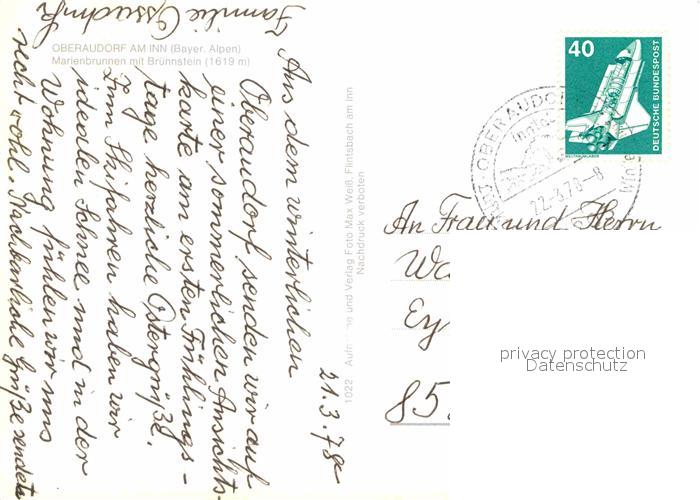 OBERAUDORF AM INN (Bayer. Alpen)
Marienbrunnen mit Brünnstein (1619 m)
21.3.78
Aus dem winterlichen
Oberaudorf senden wir auf
einer sommerlichen Ansichts-
karte am ersten Frühlings-
tage herzliche Ostergrüße.
Zum Skifahren haben wir
idealen Schnee und in der
Wohnung fühlen wir uns
recht wohl. Nachbarliche Grüße sendet
Familie
1022 Aufnahme und Verlag Foto Max Weiß, Flintsbach am Inn
Nachdruck verboten
40
DEUTSCHE BUNDESPOST
WELTRAUMLABOR
OBERAUDORF
22.3.78-8
An Frau und Herrn
Wa
Ey
85
privacy protection
Datenschutz